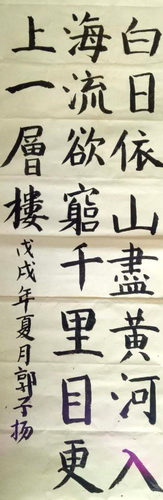 白日依山盡黃河入
海流欲窮千里目更
上一層樓
戊戌年夏月郭子扬